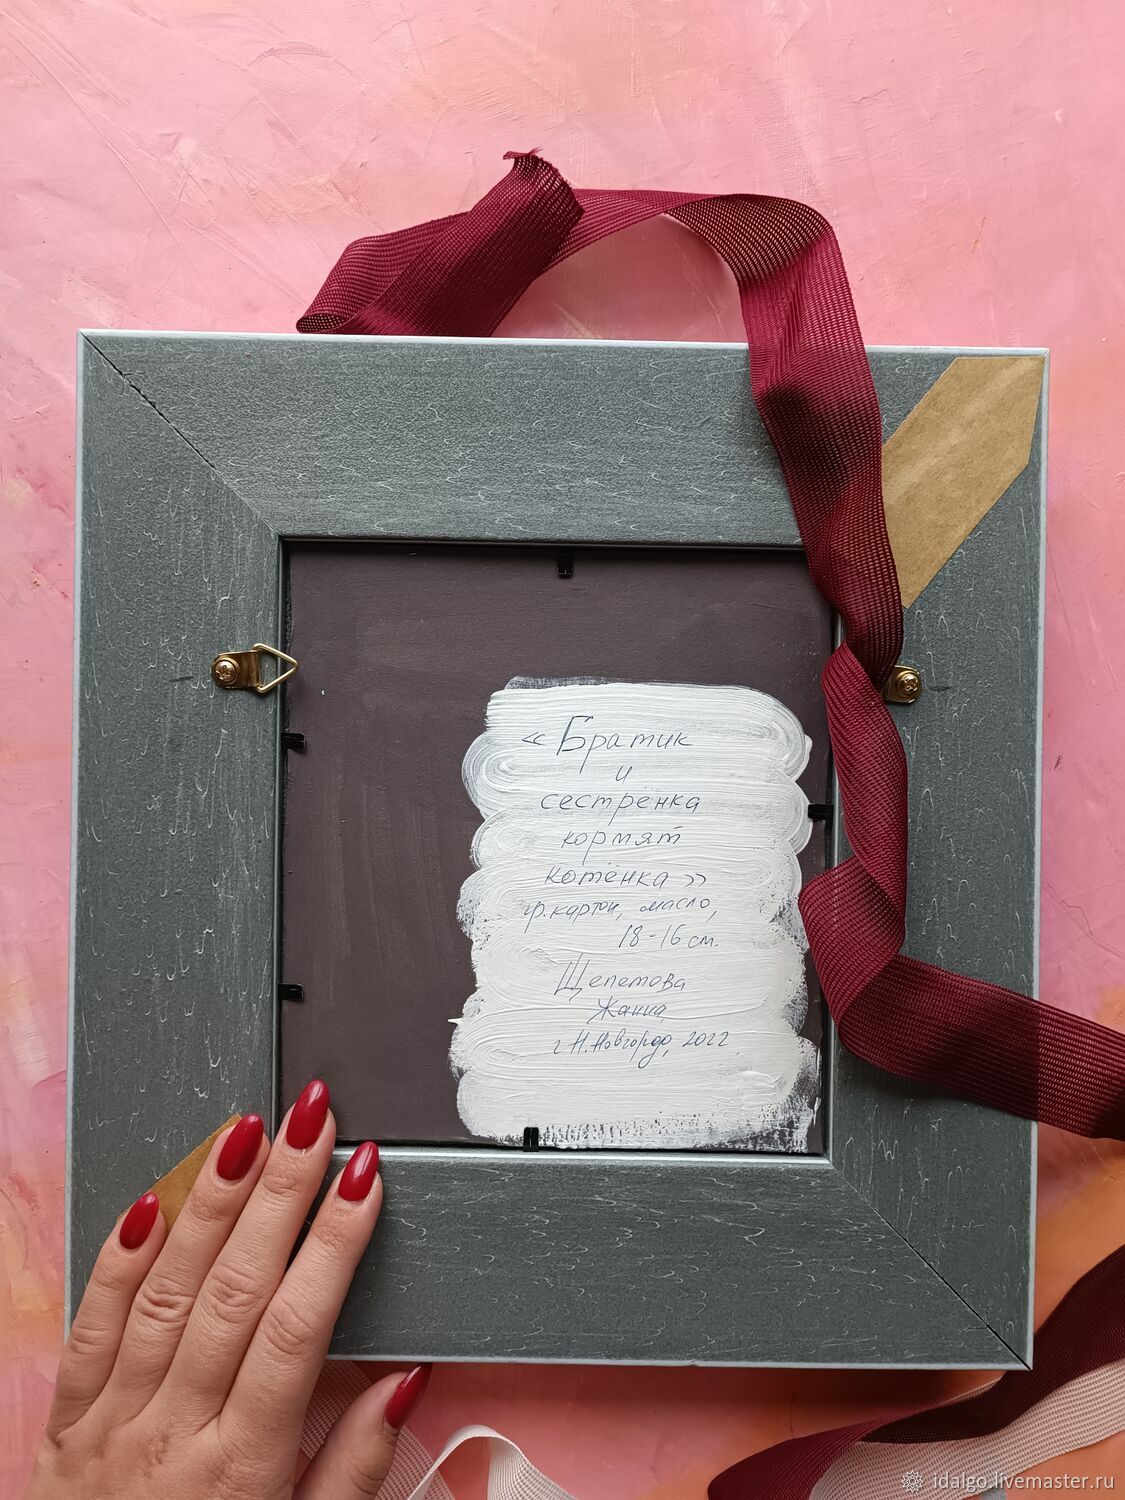 « Братик
и
сестрёнка
кормят
котёнка »
гр.картон, масло,
18-16 см.
Щепетова
Жанна,
г Н.Новгород, 2022
idalgo.livemaster.ru